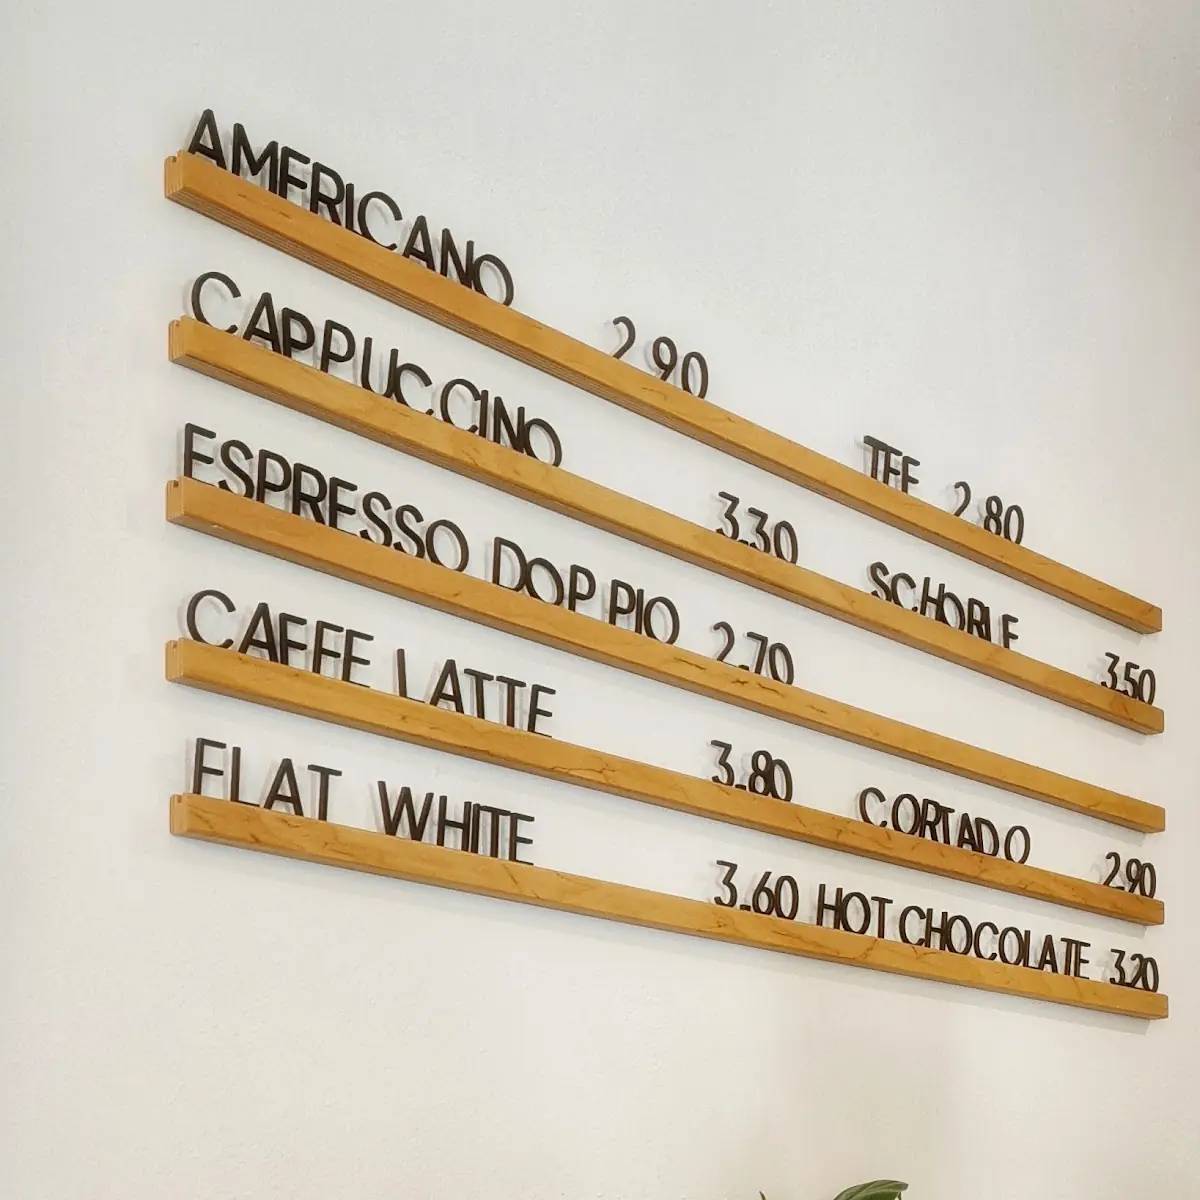 AMERICANO 2.90 TEE 2.80
CAPPUCCINO 3.30 SCHORLE 3.50
ESPRESSO DOPPIO 2.70
CAFFE LATTE 3.80 CORTADO 2.90
FLAT WHITE 3.60 HOT CHOCOLATE 3.20